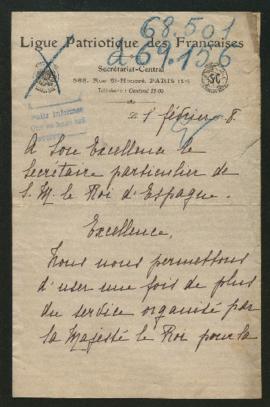 68.501
269.156
Ligue Patriotique des Françaises
Secrétariat-Central
368, Rue St-Honoré, PARIS
Téléphone : Central
21 février 8.
A Son Excellence le
Secrétaire particulier de
S. M. le Roi d'Espagne.
Excellence,
Nous nous permettons
d'user une fois de plus
du service organisé par
sa Majesté le Roi pour la